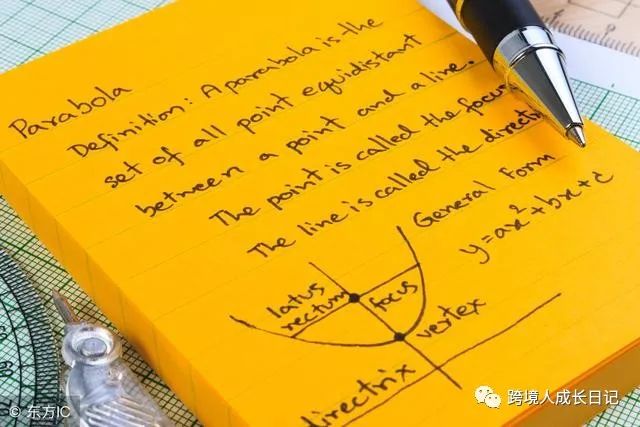 Parabola
Definition: A parabola is the
set of all point equidistant
between a point and a line.
The point is called the focus
The line is called the directri
General Form
y=ax²+bx+c
latus
rectum
focus
vertex
directrix
跨境人成长日记
© 东方IC